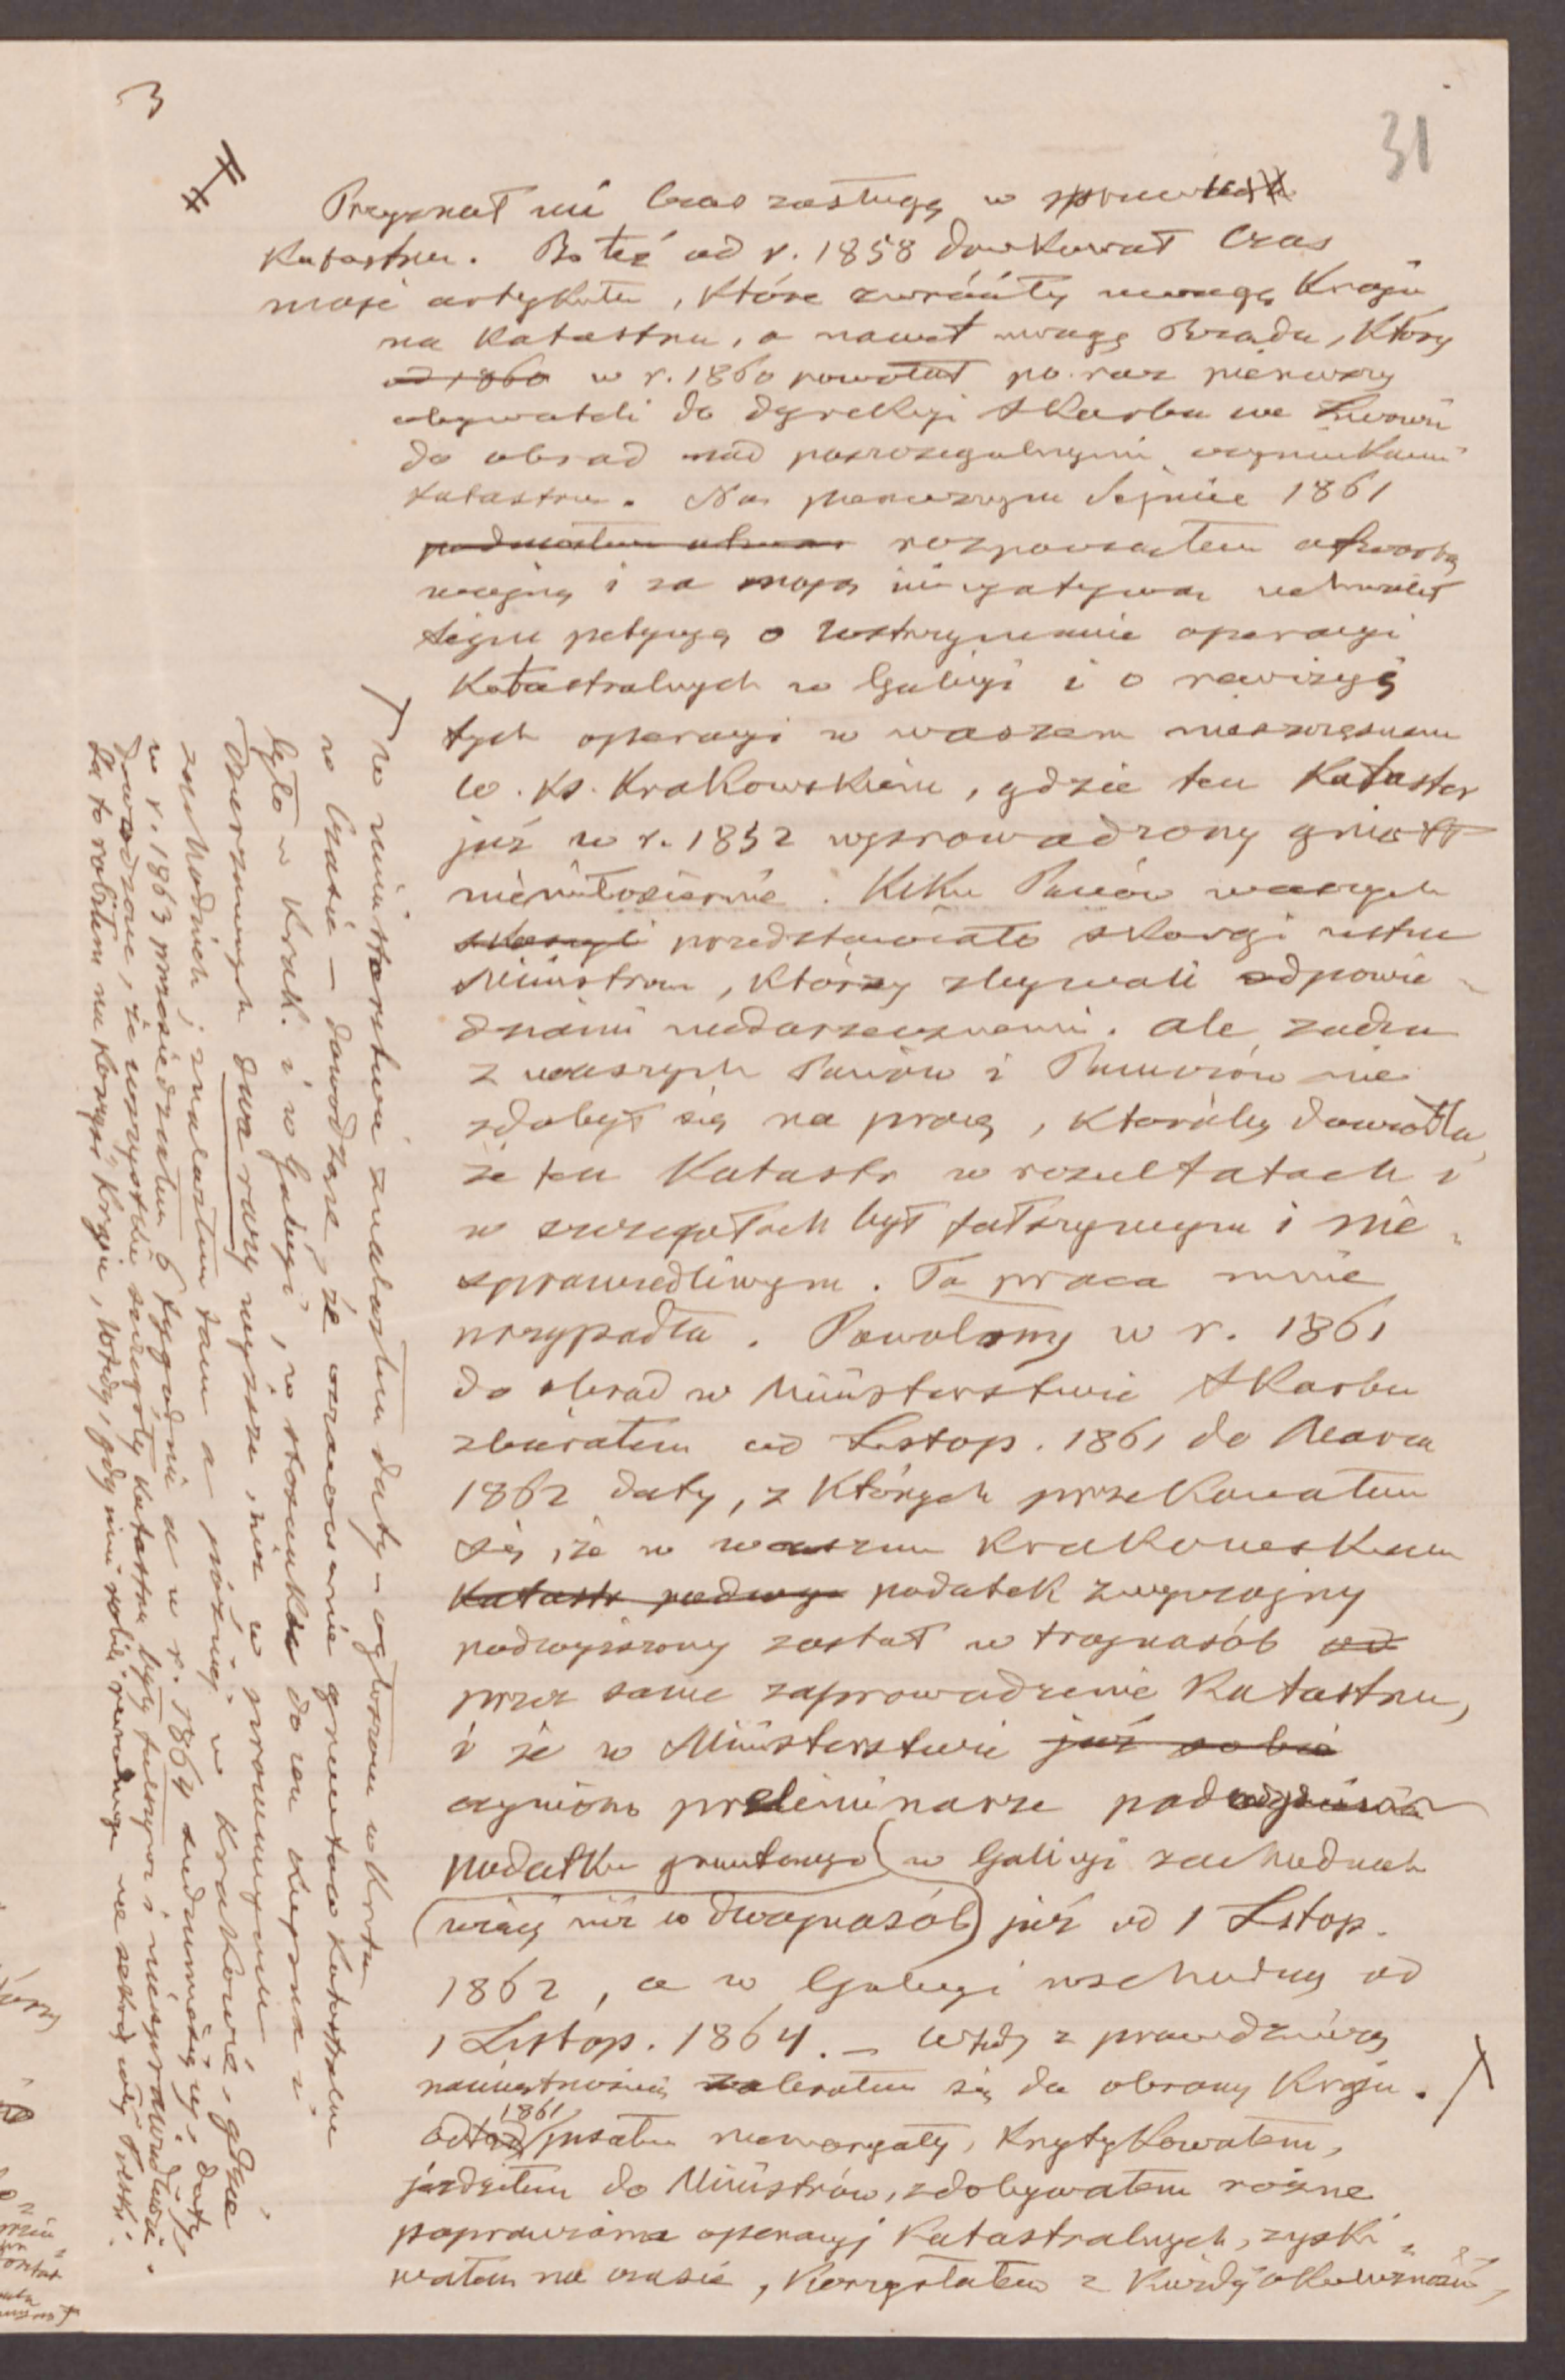 3
31
Przyznał mi Czas zasługę w sprawie
Katastru. Bo też od r. 1858 drukował Czas
moje artykuły, które zwróciły uwagę Kraju
na Katastru, a nawet uwagę Rządu, który
od 1860 w r. 1860 powołał po raz pierwszy
obywateli do dyrekcyi Skarbu we Lwowie
do obrad nad poszczególnymi wynikami
katastru. Na pierwszym Sejmie 1861
rozpocząłem otwartą
wojnę i za moją inicyatywą uchwalił
sejm petycyę o wstrzymanie operacyi
Katastralnych w Galicyi i o rewizyę
tych operacyi w waszem nieszczęsnem
W. Ks. Krakowskiem, gdzie ten Kataster
już w r. 1852 wprowadzony gniótł
niemiłosiernie. Kilku Panów waszych
skarżyli przedstawiało skargi ustne
Ministrom, którzy zbywali odpowie-
dziami niedorzecznemi. Ale żaden
z waszych Panów i Panuniów nie
zdobył się na pracę, któraby dowiodła,
że ten Katastr w rezultatach i
w szczegółach był fałszywym i nie-
sprawiedliwym. Ta praca mnie
przypadła. Powołany w r. 1861
do obrad w Ministerstwie Skarbu
zbierałem od Listop. 1861 do Marca
1862 daty, z których przekonałem
się, że w waszem Krakowskiem
Katastr podwyż podatek zwyczajny
podwyższony został w trójnasób od
przez same zaprowadzenie Katastru,
i że w Ministerstwie już sobie
czyniono preliminarze podwyższenia
podatku gruntowego w Galicyi zachodniej
(więcej niż w dwójnasób) już od 1 Listop.
1862, a w Galicyi wschodniej od
1 Listop. 1864. – Wtedy z prawdziwą
namiętnością zabrałem się do obrony Kraju.
Odtąd 1861 pisałem memoryały, krytykowałem,
jeździłem do Ministrów, zdobywałem różne
poprawienia operacyj Katastralnych, zyski-
wałem na czasie, korzystałem z każdej okoliczności,
w ministerstwie znalazłem daty – ogłoszone w krótce
w Czasie – dowodzące, że oszacowanie gruntów katastralne
było w Krak. i w Galicyi, w stosunku do cen kupna i
dzierżawnych dwa razy wyższe, niż w prowincyach
zachodnich; znalazłem tam a później w Krakowie, gdzie
w r. 1863 przesiedziałem 6 tygodni a w r. 1864 daty
dowodzące, że wszystkie szczegóły katastru były fałszywe i niesprawiedliwe.
Ja to robiłem na korzyść Kraju, wtedy, gdy inni robili